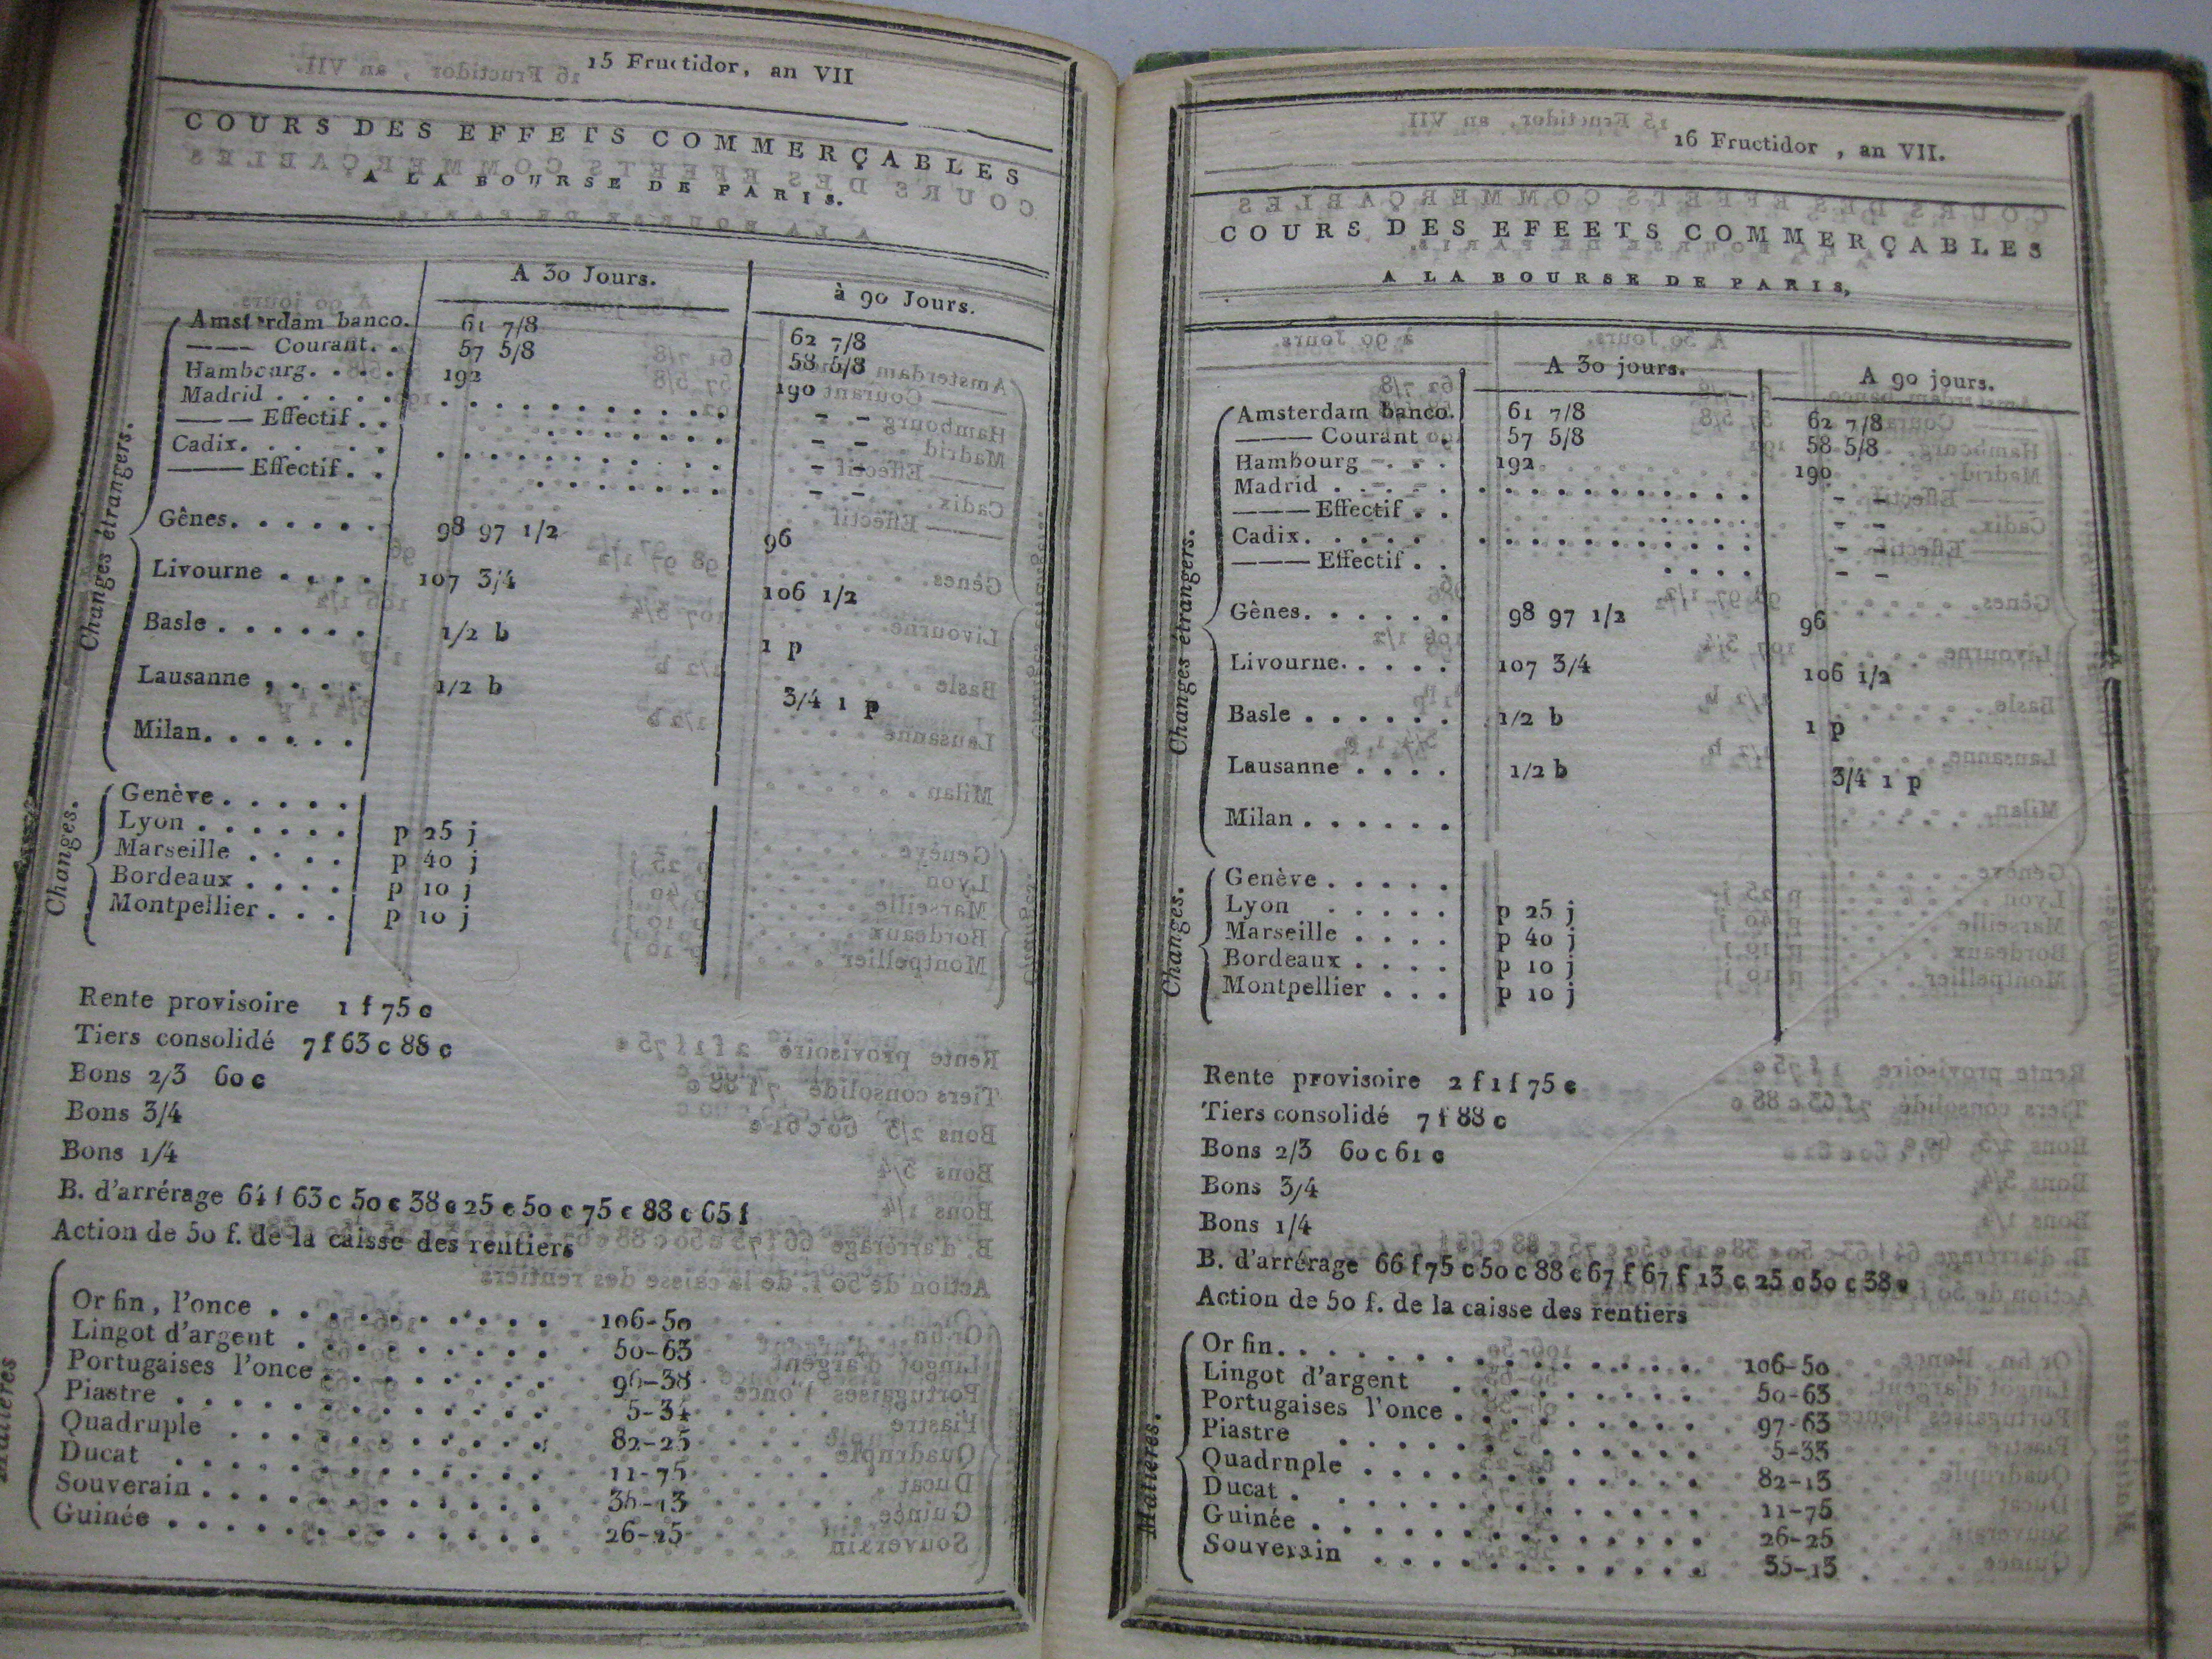 15 Fructidor, an VII
COURS DES EFFETS COMMERÇABLES
A LA BOURSE DE PARIS.
A 30 Jours. à 90 Jours.
Changes étrangers.
Amsterdam banco. 61 7/8 62 7/8
——— Courant. . 57 5/8 58 5/8
Hambourg. . . . . 192 190
Madrid . . . . . . . . . . . . . . . . – –
——— Effectif . . . . . . . . . . – –
Cadix. . . . . . . . . . . . . . . . – –
——— Effectif . . . . . . . . . . – –
Gênes. . . . . . . 98 97 1/2 96
Livourne . . . . 107 3/4 106 1/2
Basle . . . . . . 1/2 b 1 p
Lausanne , . . . 1/2 b 3/4 1 p
Milan. . . . . . .
Changes.
Genève . . . . .
Lyon . . . . . . p 25 j
Marseille . . . . p 40 j
Bordeaux . . . . p 10 j
Montpellier . . . p 10 j
Rente provisoire 1 f 75 c
Tiers consolidé 7 f 63 c 88 c
Bons 2/3 60 c
Bons 3/4
Bons 1/4
B. d'arrérage 64 f 63 c 50 c 38 c 25 c 50 c 75 c 88 c 65 f
Action de 50 f. de la caisse des rentiers
Matières
Or fin, l'once . . . . . . . . . . 106-50
Lingot d'argent . . . . . . . . . 50-63
Portugaises l'once . . . . . . . . 96-38
Piastre . . . . . . . . . . . . . 5-34
Quadruple . . . . . . . . . . . 82-25
Ducat . . . . . . . . . . . . . 11-75
Souverain . . . . . . . . . . . . -13
Guinée . . . . . . . . . . . . . 26-25
16 Fructidor , an VII.
COURS DES EFEETS COMMERÇABLES
A LA BOURSE DE PARIS,
A 30 jours. A 90 jours.
Changes étrangers.
Amsterdam banco. 61 7/8 62 7/8
——— Courant . 57 5/8 58 5/8
Hambourg . . . 192 190
Madrid . . . . . . . . . . . . . . . . – –
——— Effectif . . . . . . . . . – –
Cadix. . . . . . . . . . . . . . . . – –
——— Effectif . . . . . . – –
Gênes. . . . . . . 98 97 1/2 96
Livourne. . . . . 107 3/4 106 1/2
Basle . . . . . . 1/2 b 1 p
Lausanne . . . . 1/2 b 3/4 1 p
Milan . . . . . .
Changes.
Genève . . . . .
Lyon . . . . . p 25 j
Marseille . . . . p 40 j
Bordeaux . . . . p 10 j
Montpellier . . . p 10 j
Rente provisoire 2 f 1 f 75 c
Tiers consolidé 7 f 88 c
Bons 2/3 60 c 61 c
Bons 3/4
Bons 1/4
B. d'arrérage 66 f 75 c 50 c 88 c 67 f 67 f 13 c 25 c 50 c 38 c
Action de 50 f. de la caisse des rentiers
Matières.
Or fin. . . . . . . . . . . . . . . 106-50
Lingot d'argent . . . . . . . . . 50-63
Portugaises l'once . . . . . . . . . 97-63
Piastre . . . . . . . . . . . . . 5-33
Quadrnple . . . . . . . . . . . . 82-13
Ducat . . . . . . . . . . . . . . 11-75
Guinée . . . . . . . . . . . . . . 26-25
Souverain . . . . . . . . . . . . 35-13